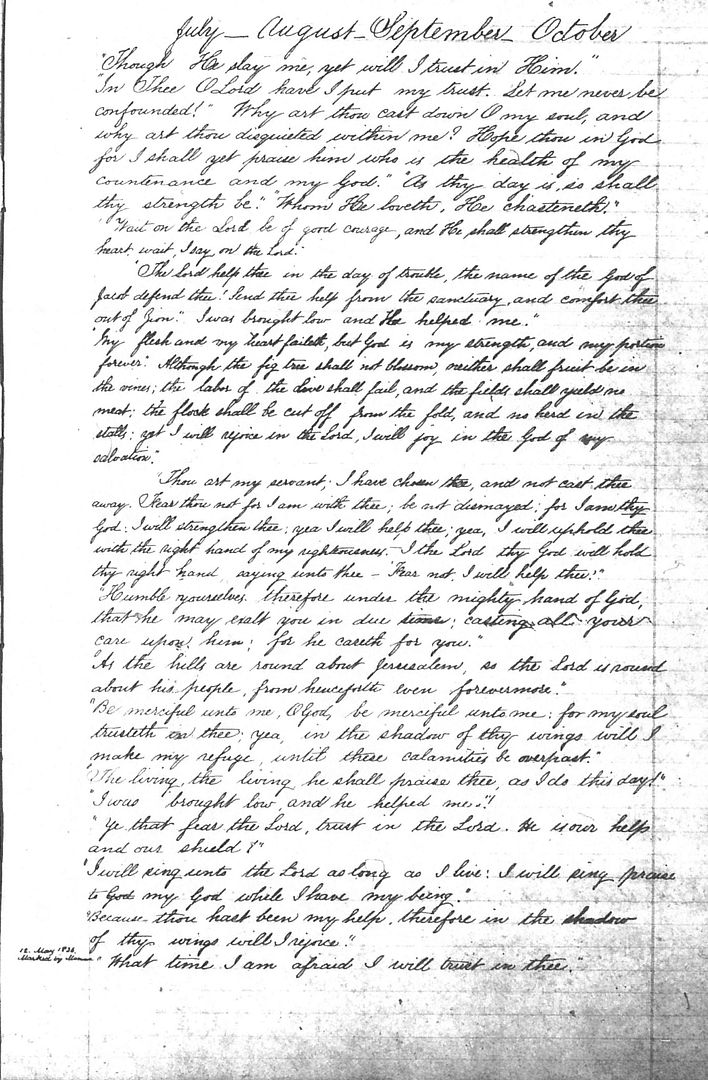 July – August – September – October
"Though He slay me, yet will I trust in Him."
"In Thee O Lord have I put my trust. Let me never be
confounded!" Why art thou cast down O my soul, and
why art thou disquieted within me? Hope thou in God
for I shall yet praise him who is the health of my
countenance and my God." "As thy day is, so shall
thy strength be." "Whom He loveth, He chasteneth."
"Wait on the Lord be of good courage, and He shall strengthen thy
heart, wait, I say, on the Lord."
"The Lord help thee in the day of trouble, the name of the God of
Jacob defend thee! Send thee help from the sanctuary, and comfort thee
out of Zion." I was brought low and He helped me."
"My flesh and my heart faileth, but God is my strength, and my portion
forever". Although the fig tree shall not blossom, neither shall fruit be in
the vines; the labor of the olive shall fail, and the fields shall yield no
meat; the flock shall be cut off from the fold, and no herd in the
stalls; yet I will rejoice in the Lord, I will joy in the God of my
salvation."
"Thou art my servant; I have chosen thee, and not cast thee
away. Fear thou not for I am with thee; be not dismayed; for I am thy
God: I will strengthen thee; yea I will help thee; yea, I will uphold thee
with the right hand of my righteousness. – I the Lord thy God will hold
thy right hand, saying unto thee – Fear not, I will help thee!"
"Humble yourselves therefore under the mighty hand of God,
that he may exalt you in due time; casting all your
care upon him; for he careth for you."
"As the hills are round about Jerusalem, so the Lord is round
about his people, from henceforth even forevermore."
"Be merciful unto me, O God, be merciful unto me: for my soul
trusteth in thee; yea, in the shadow of thy wings will I
make my refuge, until these calamities be overpast."
"The living, the living, he shall praise thee, as I do this day!"
"I was brought low, and he helped me."!
"Ye that fear the Lord, trust in the Lord. He is our help
and our shield!"
"I will sing unto the Lord as long as I live: I will sing praise
to God my God while I have my being."
"Because thou hast been my help, therefore in the shadow
of thy wings will I rejoice."
12. May 1836.
Marked by Mamma "What time I am afraid I will trust in thee."